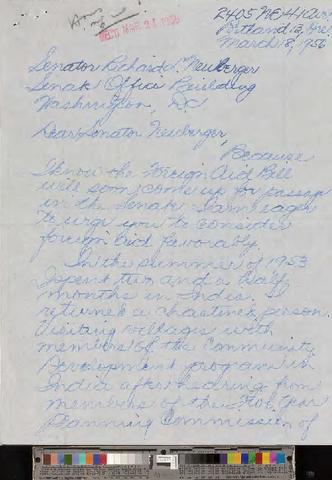 2405 NE 41 Ave
Portland 13, Ore.
March 18, 1956
REC'D MAR 21 1956
Senator Richard L. Neuberger
Senate Office Building
Washington, D.C.
Dear Senator Neuberger,
Because
I know the Foreign Aid Bill
will soon come up for passage
in the Senate I am eager
to urge you to consider
foreign aid favorably.
In the summer of 1953
I spent two and a half
months in India. I
returned a chastened person.
Visiting villages with
members of the Community
Development program in
India after hearing from
members of the Five Year
Planning Commission of